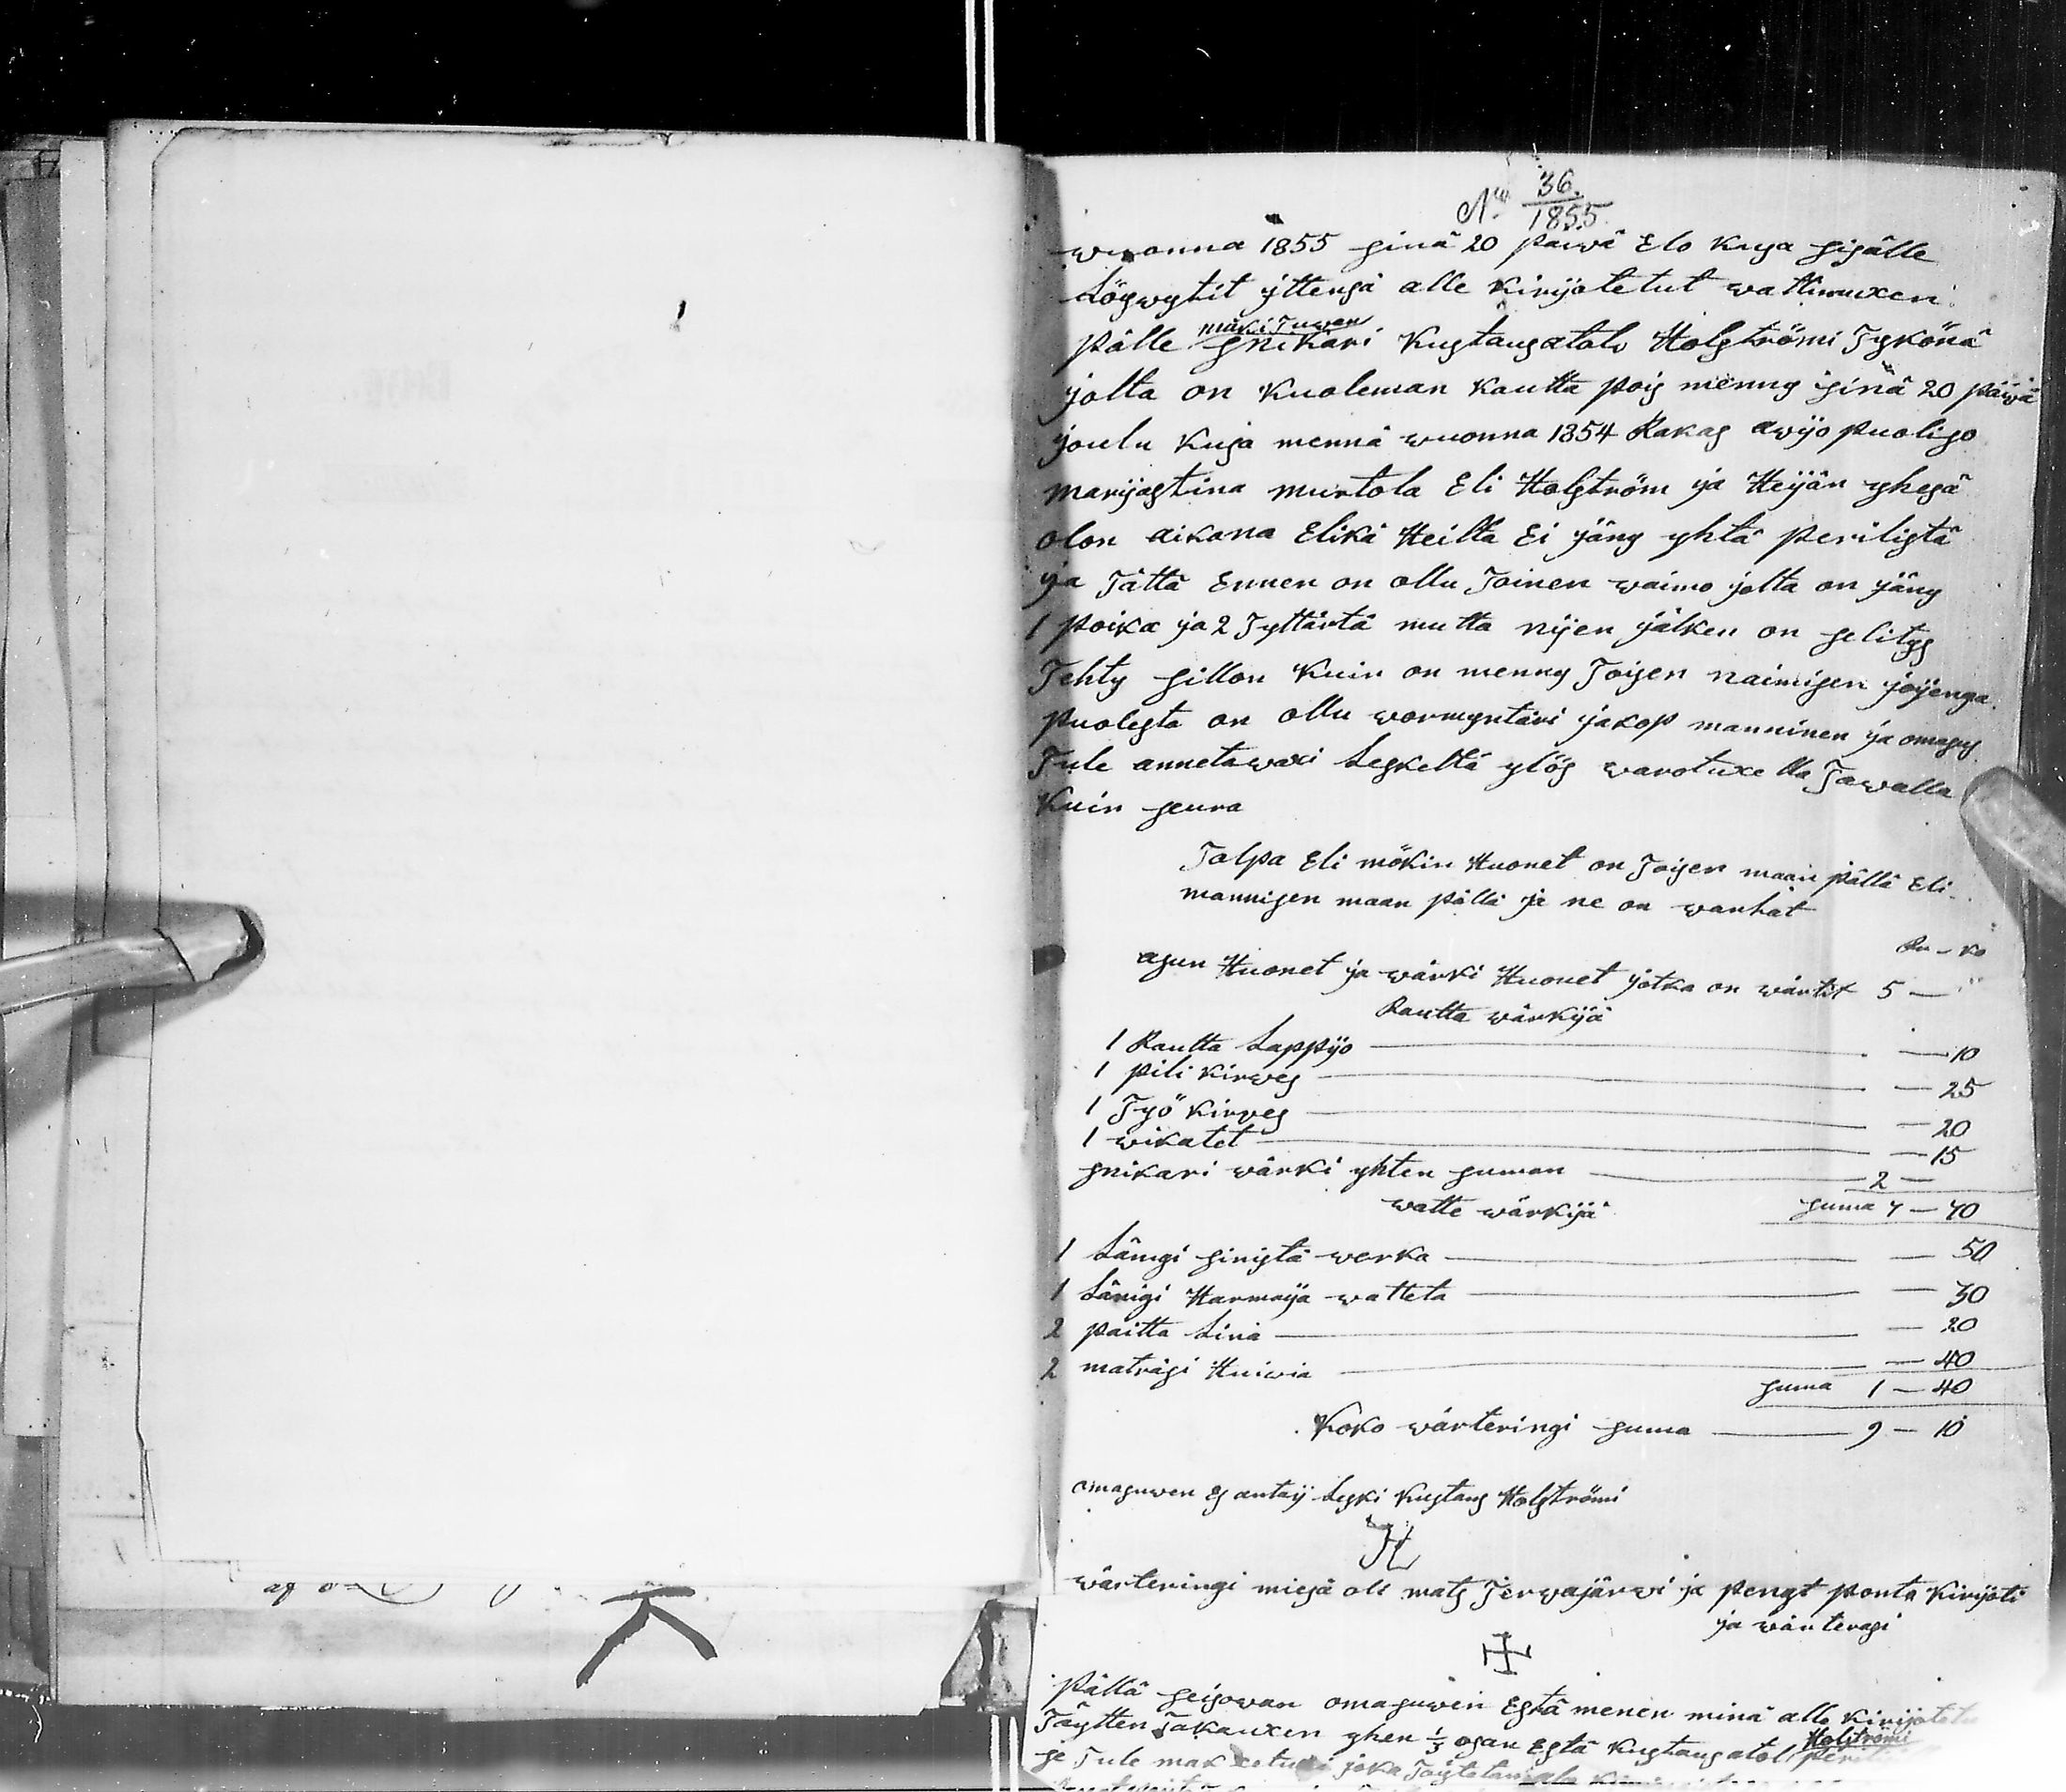 No 36.
1855.
wuonna 1855 sinä 20 päiwä Elo kusa sisälle
Löywytit yttensä alle kirijotetut wattimuxen
mäkituwan
Pälle snikari kustausatolv Holströmi Tykönä
jolta on kuoleman kautta pois menny sinä 20 päiwä
joulu kusa mennä wuonna 1854 Rakas awijo puoliso
marijastina murtola Eli Holström ja Heijän yhesä
olon aikana Elikä Heiltä Ei jäny yhtä perilistä
ja Tättä Ennen on ollu Toinen waimo jolta on jäny
1 poika ja 2 Tyttärtä mutta nijen jälken on selitys
Tehty sillon kuin on menny Toisen naimisen joijenga
puolesta on ollu wormyntäri jakop manninen ja omasus
Tule annetawaxi Leskeltä ylös warotuxella Tawalla
kuin seura
Talpa Eli mökin Huonet on Toisen maan pällä Eli
mannisen maan pällä ja ne on wanhat
Ru - ko
asun Huonet ja wärki Huonet jotka on wärtit 5 — "
Rautta wärkijä
1 Rautta Lappijo — 10
1 pili kirwes — 25
1 Työ kirwes — 20
1 wikatet — 15
snikari wärki yhten suman 2 —
watte wärkijä suma 7 — 70
1 Länigi sinistä werka — 50
1 Länigi Harmaija watteta — 30
2 paitta Linä — 20
2 maträsi Huiwia — 40
suma 1 — 40
Koko wärteringi suma 9 — 10
omasuwen Es antaij Leski kustaus Holströmi
H
wärteringi miesä oli mats Jerwajärwi ja pengt ponta kirijoti
ja wärterasi
Pällä seisowan omasuwen Estä menen minä alle kirijotetu
Täytten Takauxen yhen 1/3 osan Estä kustausatol Holströmi
se Tule joka Täytetän